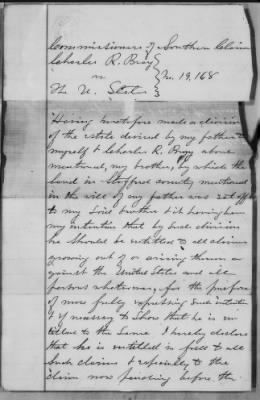 Commissioners of Southern Claims
Charles R. Bray
vs No. 19,168
The U. States
Having heretofore made a division
of the estate devised by my father to
myself & Charles R. Bray above
mentioned, my brother, by which the
land in Stafford county, mentioned
in the will of my father was set off
to my said brother & it having been
my intention that by such division
he should be entitled to all claims
growing out of or arising therein
against the United States and all
persons whatsoever, for the purpose
of more fully expressing such intention
& if necessary to show that he is en
titled to the same I hereby declare
that he is entitled in full to all
such claims & especially to the
claim now pending before the